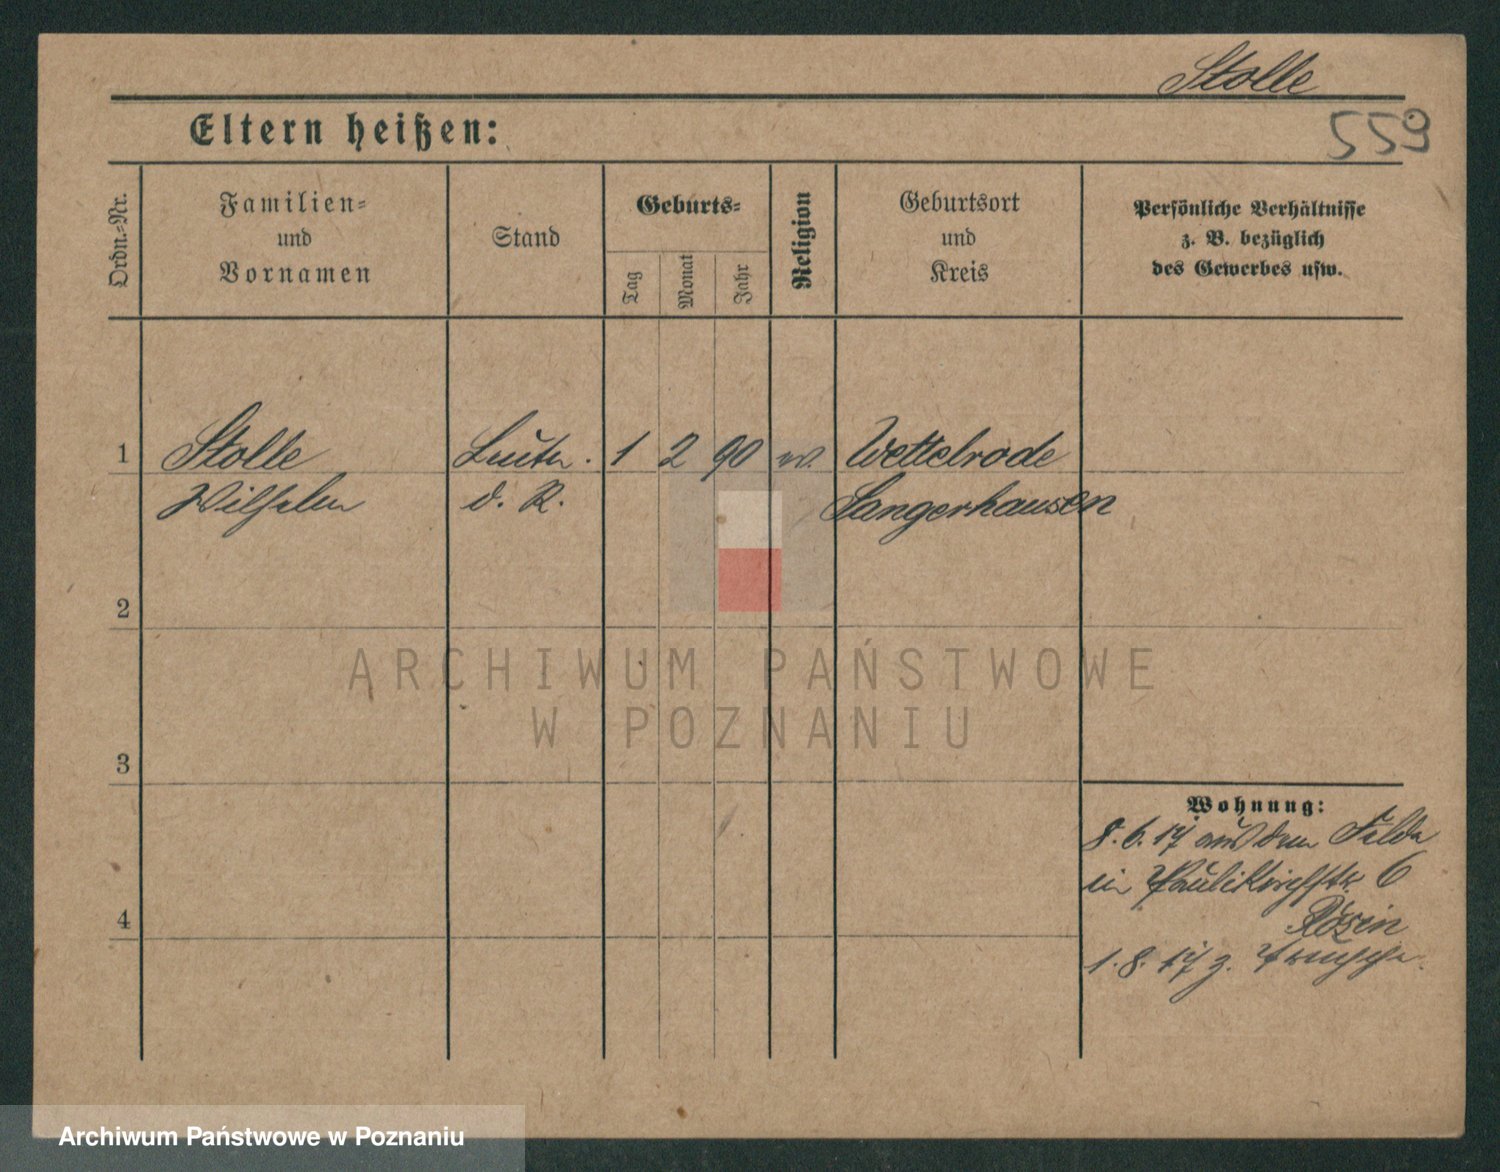 Stolle
559
Eltern heißen:
Ordn.-Nr.
Familien-
und
Vornamen
Stand
Geburts-
Tag
Monat
Jahr
Religion
Geburtsort
und
Kreis
Persönliche Verhältnisse
z. B. bezüglich
des Gewerbes usw.
1 Stolle Leutn. 1 2 90 ev. Wettelrode
Wilhelm d. R. Sangerhausen
2
ARCHIWUM PAŃSTWOWE
W POZNANIU
3
Wohnung:
8.6.17 aus dem Felde
in Paulikirchstr. 6
4
1.8.17 z. Truppe.
Archiwum Państwowe w Poznaniu